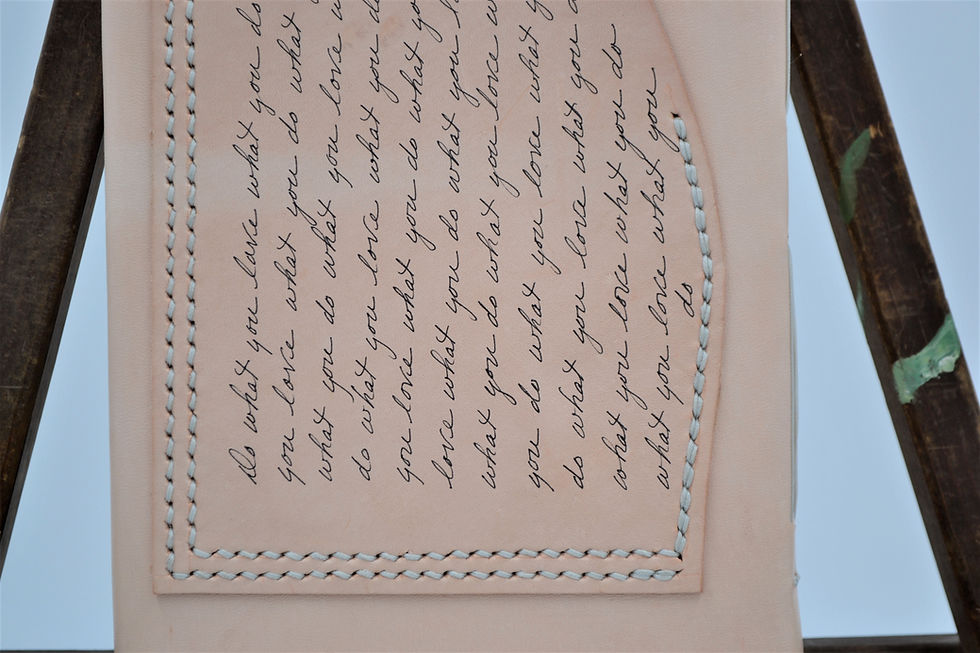 Do what you love what you do
you love what you do what
what you do what you love
do what you love what you
you love what you do what
love what you do what you
what you do what you love
you do what you love what
do what you love what you
what you love what you do
what you love what you
do